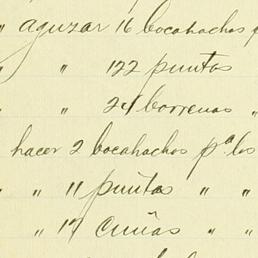 " aguzar 16 bocahachos p
" " 122 puntas
" " 24 borrenas "
hacer 2 bocahachos pª los
" " 11 puntas " "
" 17 cuñas " "